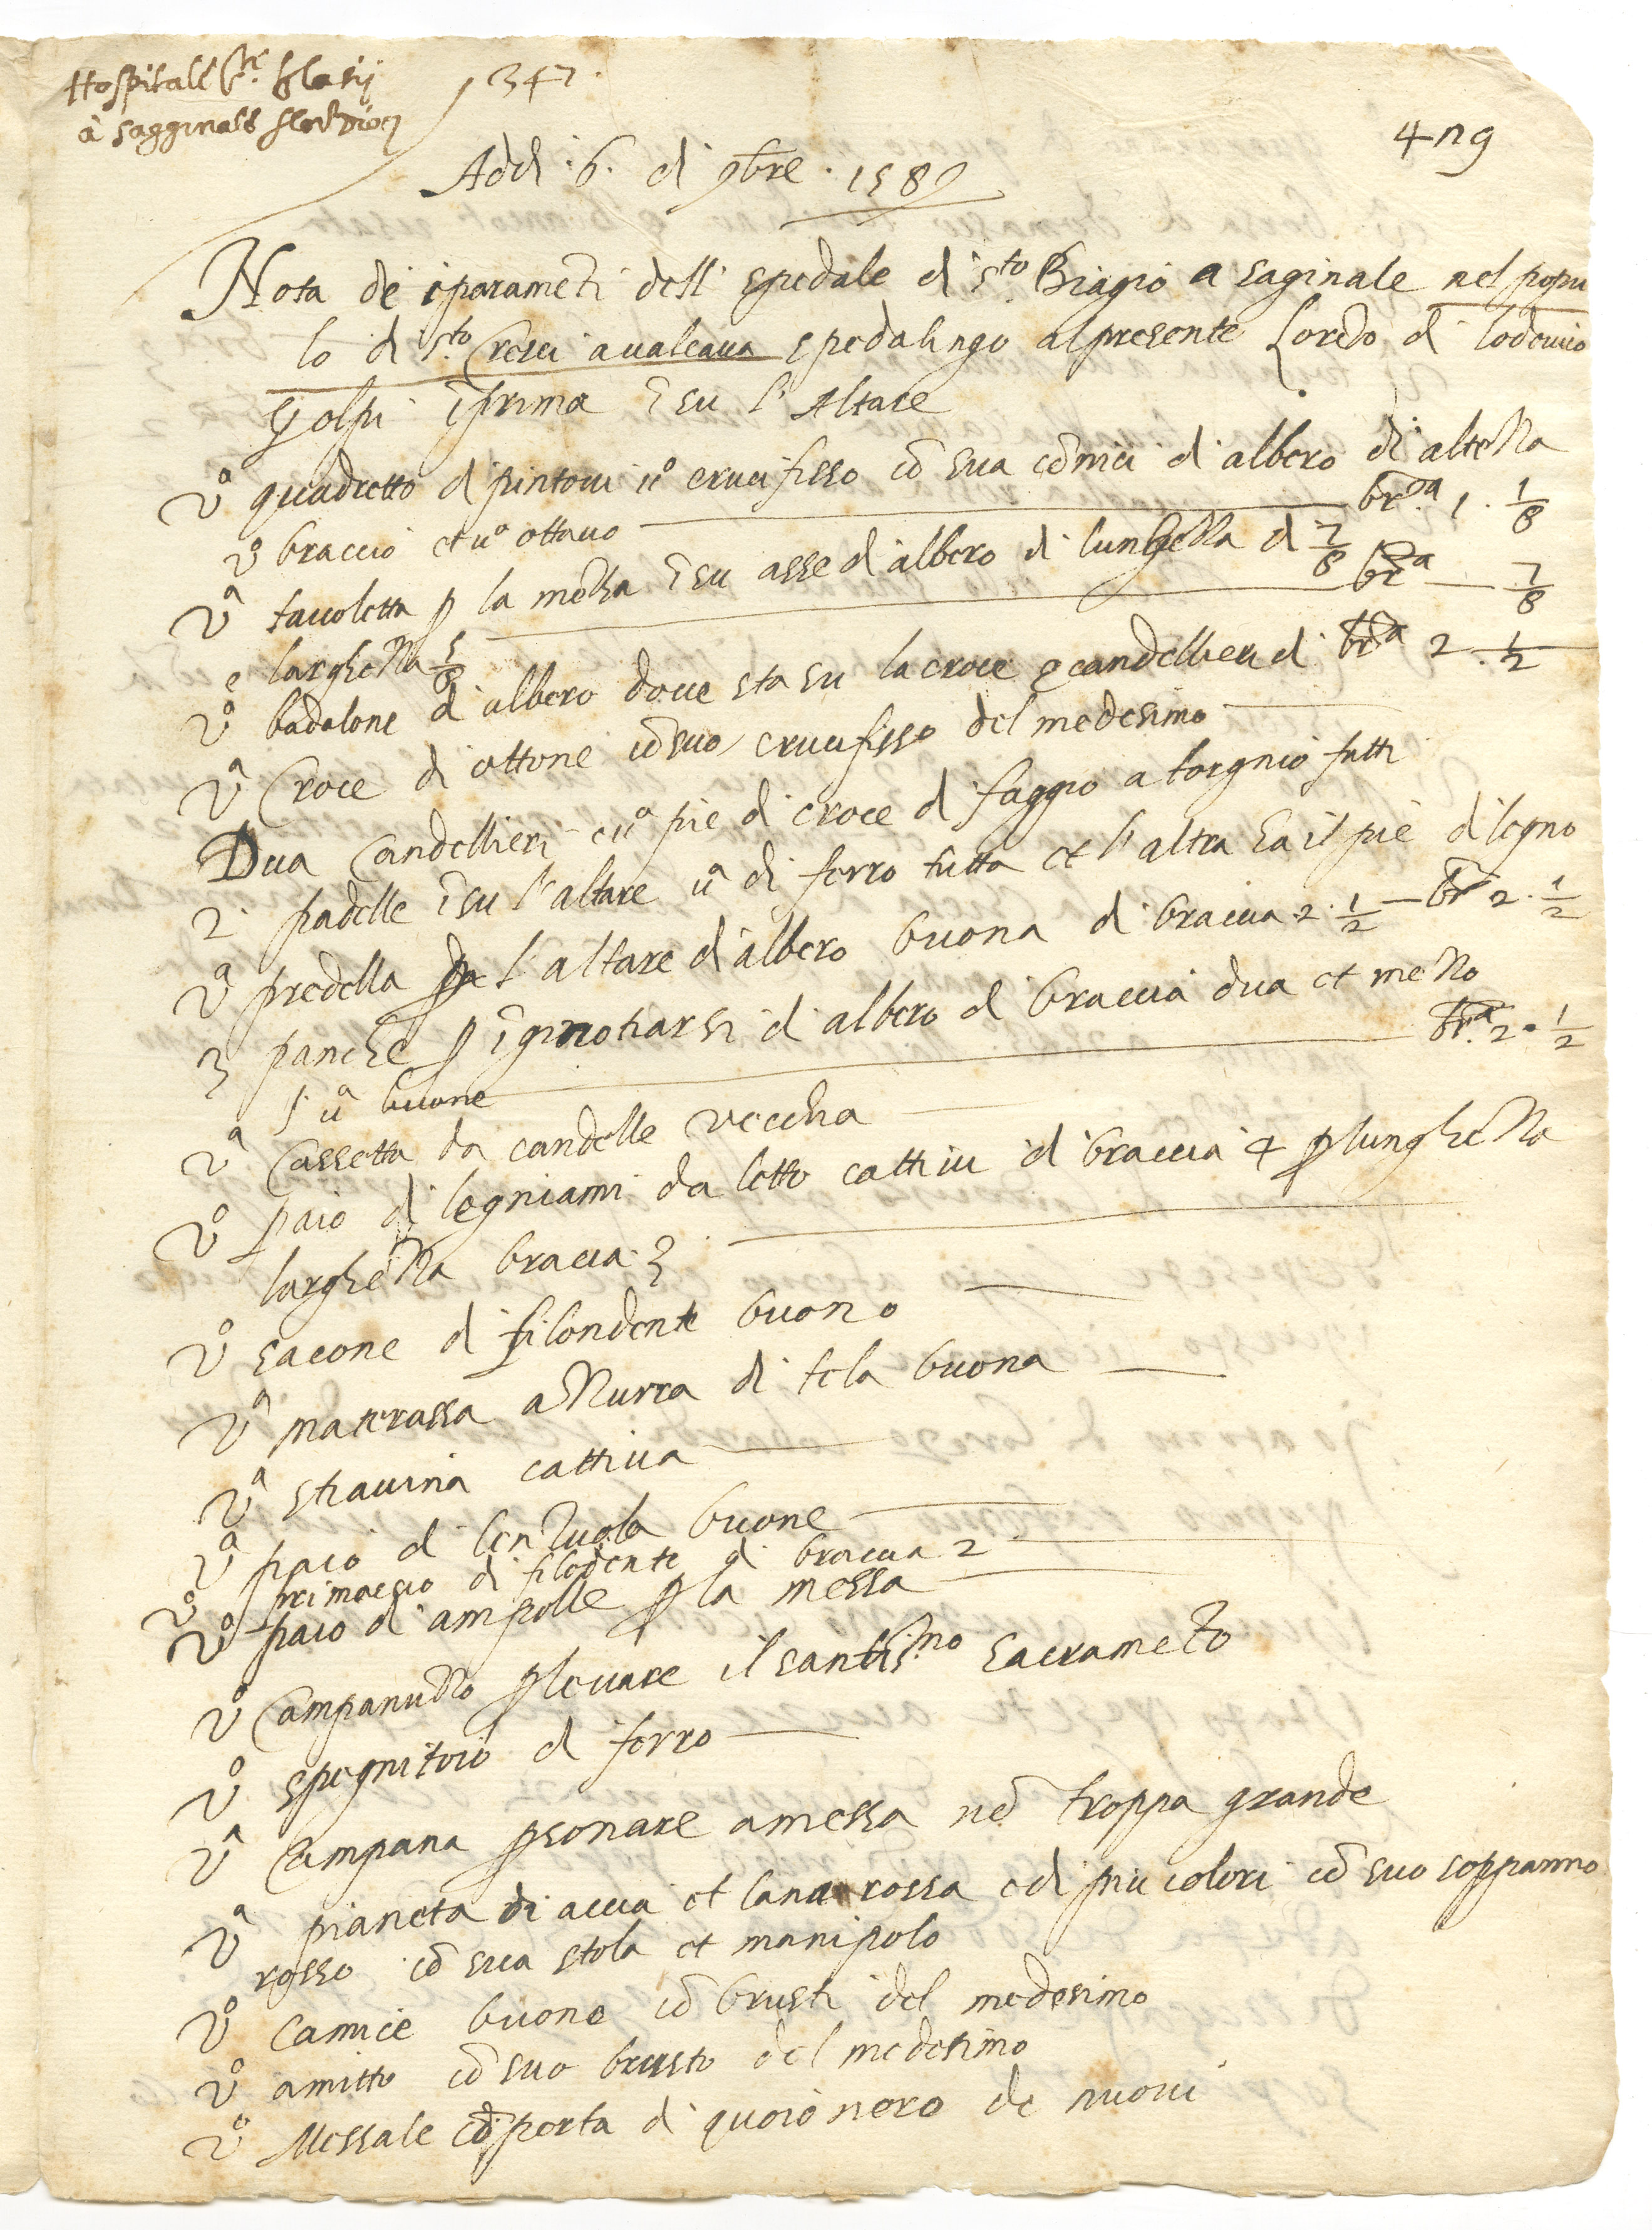 Hospitale Sti. Blasij
à Sagginale
347.
479
Addi .6. di 9bre . 1589
Nota de iparameti dell spedale di sto. Biagio a saginale nel popu
lo di sto. Cresci aualcaua spedalingo alpresente Loredo di lodouico
uolpi iprima ī su l'Altare
Vo quadretto dipintoui uo crucifisso cō sua cōnici di albero di alteza
vo braccio et uo ottauo bra. 1. 1/8
Va tauoletta p la ī su asse d'albero di lungheza di 7/8 bra 7/8
e largheza 5/8
Vo badalone d'albero doue sta su lacroce e candellieri di bra 2 . 1/2
Va Croce di ottone cōsuo crucifisso del medesimo
Dua Candellieri e uo pie di croce di faggio a torgnio fatti
2. padelle ī su l'altare ua di ferro tutta et l'altra ha il pie di legno
Va predella per l'altare d'albero buona di braccia 2. 1/2 br 2. 1/2
3 panche p īginochiarsi di albero di braccia dua et mezo
l'ua buone bra. 2. 1/2
Va Cassetta da candelle vecchia
Vo paio di legniami da letto cattiui di braccia 4 p lungheza
largheza braccia 3
Vo sacone di filondente buono
Va materassa azurra di tela buona
Va stiauina cattiua
Va paio di lenzuola buone
Vo primaccio di filodente di braccia 2
Vo paio di ampolle p la messa
Vo Campanuzo p leuare il santissmo sacrameto
Vo spegnitoio di ferro
Va Campana p sonare amessa nō troppa grande
Va pianeta di accia et lana rossa e di piu colori cō suo soppanno
rosso cō sua stola et manipolo
Vo Camice buono cō brusti del medesimo
Vo amitto cō suo brusto del medesimo
Vo Messale coperta di quoio nero de nuoui